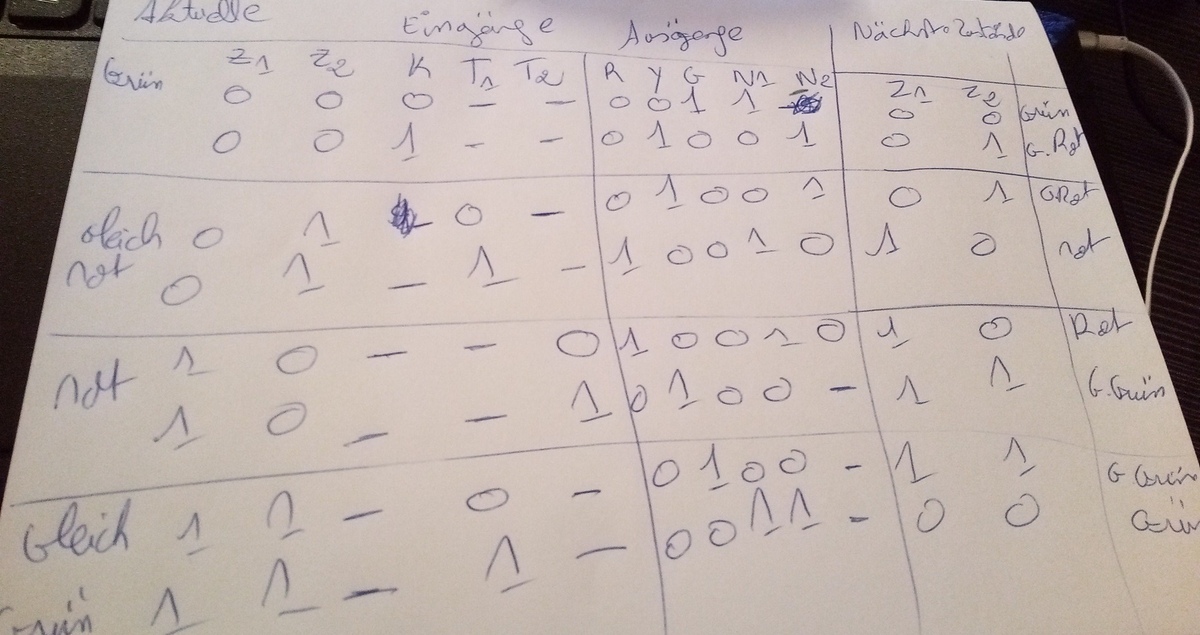 Aktuelle Eingänge Ausgänge Nächste Zustände
Grün Z1 Z2 K T1 T2 R Y G N1 N2 Z1 Z2
0 0 0 - - 0 0 1 1 - 0 0 Grün
0 0 1 - - 0 1 0 0 1 0 1 G.Rot
Gleich 0 1 - 0 - 0 1 0 0 1 0 1 GRot
rot 0 1 - 1 - 1 0 0 1 0 1 0 rot
rot 1 0 - - 0 1 0 0 1 0 1 0 Rot
1 0 - - 1 0 1 0 0 - 1 1 G.Grün
Gleich 1 1 - 0 - 0 1 0 0 - 1 1 G Grün
Grün 1 1 - 1 - 0 0 1 1 - 0 0 Grün